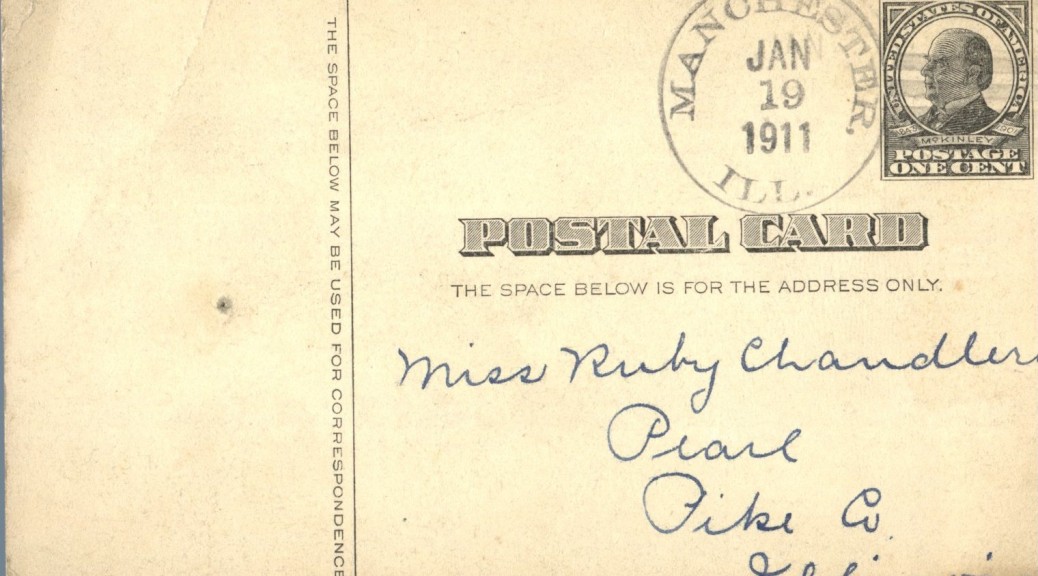 THE SPACE BELOW MAY BE USED FOR CORRESPONDENCE
MANCHESTER,
JAN
19
1911
ILL.
UNITED STATES OF AMERICA
McKINLEY
POSTAGE
ONE CENT
POSTAL CARD
THE SPACE BELOW IS FOR THE ADDRESS ONLY.
Miss Ruby Chandler
Pearl
Pike Co.